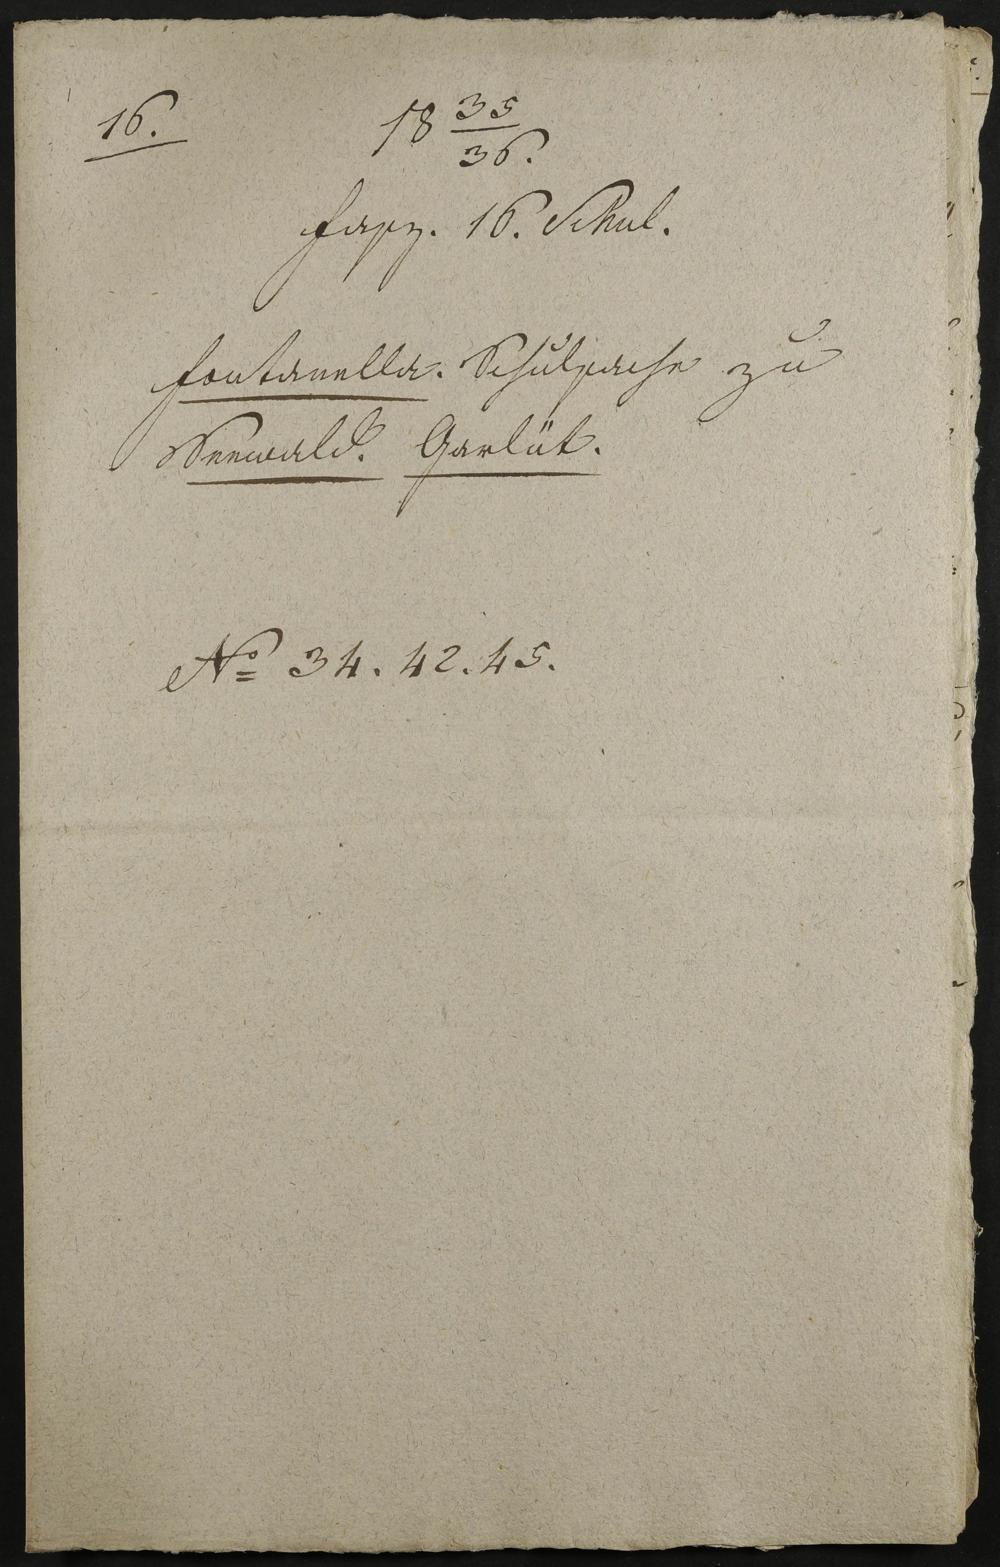 16.
18 35/36.
Fasz. 16. Schul.
Fontanella. Schulsache zu
Seewald. Garlüt.
No 34. 42. 45.